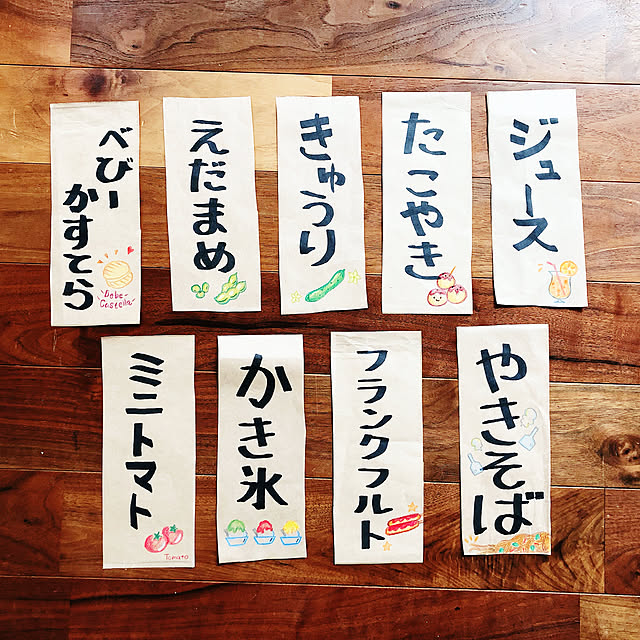 べびー
かすてら
Bebe-
Castella
えだまめ
きゅうり
たこやき
ジュース
ミニトマト
Tomato
かき氷
フランクフルト
やきそば